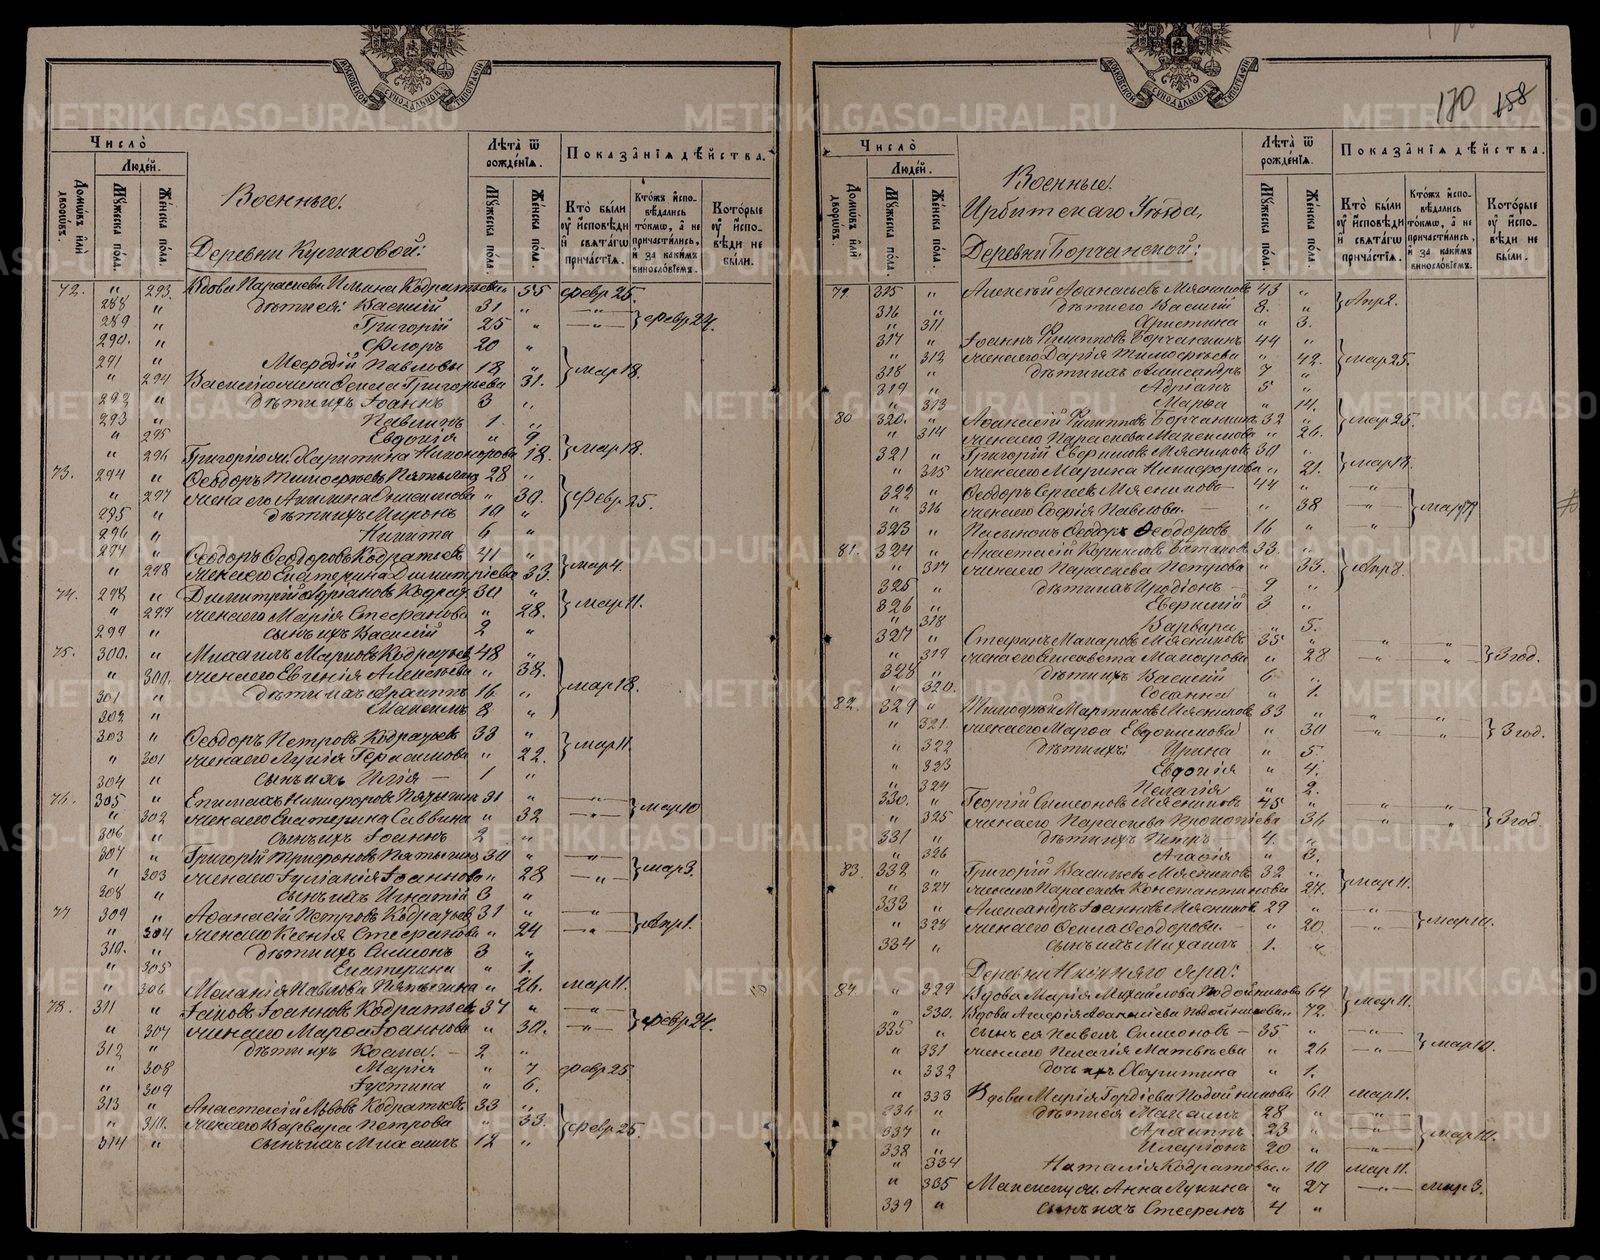 170 158
Число̀
Людей.
Домωвъ и҆лѝ дворωвъ.
Мꙋжеска пола.
Женска пола.
Военные.
Деревни Кушковой:
Лѣта ѿ рожденїѧ.
Мꙋжеска пола.
Женска пола.
Показанїѧ дѣйства.
Кто̀ бы́ли ᲂу҆ и҆сповѣди и҆ свѧтагω причастїѧ.
Кто́жъ и҆сповѣдались токмω, а҆ не причастились, и҆ за какимъ винословїемъ.
Которые ᲂу҆ и҆сповѣди не были.
72. " 293. Вдова Параскева Ильина Кодратьева " 55 февр 25.
288 " дѣти ея: Василій 31 "
289 " Григорій 25 " февр 24.
290. " Флоръ 20 "
291 " Меѳодій Павловы 18 " мар 18.
" 294 Василію жена Ѳекла Григорьева 31.
292 " дѣти ихъ Іоаннъ 3 "
293 " Павлинъ 1 "
" 295 Евдокія " 9
" 296 Григорію ж. Харитина Никонорова 18. мар 18.
73. 294 " Ѳеодоръ Тимоѳеевъ Пятыгинъ 28 "
" 297 жена его Акилина Онисимова " 30. февр 25.
295 " дѣти ихъ Миронъ 10 "
296 " Никита 6 "
297 " Ѳеодоръ Ѳеодоровъ Кодратьев 41 "
" 298 жена его Екатерина Димитріева 33. мар 4.
74. 298 " Димитрій Адріановъ Кодрат. 30 "
" 299 жена его Марія Стефанова " 28. мар 11.
299 " сынъ ихъ Василій 2 "
75. 300. " Михаилъ Марковъ Кодратьев 48 "
" 300. жена его Евгенія Алексѣева " 38.
301 " дѣти ихъ Филиппъ 16 " мар 18.
302 " Максимъ 8 "
303 " Ѳеодоръ Петровъ Кодратьев 33 "
" 301 жена его Лукія Герасимова " 22. мар 11.
304 " сынъ ихъ Илія 1 "
76. 305 " Епимахъ Никифоровъ Пятыгин 31 "
" 302 жена его Екатерина Саввина " 32 мар 10
306 " сынъ ихъ Іоаннъ 2 "
307 " Григорій Трифоновъ Пятыгин 30 "
" 303 жена его Іуліанія Іоаннова " 28 мар 3.
308 " сынъ ихъ Игнатій 3 "
77 309 " Аѳанасій Петровъ Кодратьев 31 "
" 304 жена его Ксенія Стефанова " 24 Апр 1.
310. " дѣти ихъ Симеонъ 3 "
" 305 Екатерина " 1.
" 306 Меланія Павлова Пятыгина " 26. мар 11.
78. 311 " Іаковъ Іоанновъ Кодратьев 37 "
" 307 жена его Марѳа Іоаннова " 30. февр 24.
312 " дѣти ихъ Косма. 2 "
" 308 Марія " 7 февр 25
" 309 Іустина " 6.
313 " Анастасій Львовъ Кодратьевъ 33 "
" 310. жена его Варвара Петрова " 33. февр 25.
314 " сынъ ихъ Михаилъ 12 "
Число̀
Людей.
Домωвъ и҆лѝ дворωвъ.
Мꙋжеска пола.
Женска пола.
Военные.
Ирбитскаго Уѣзда,
Деревни Борчанской:
Лѣта ѿ рожденїѧ.
Мꙋжеска пола.
Женска пола.
Показанїѧ дѣйства.
Кто̀ бы́ли ᲂу҆ и҆сповѣди и҆ свѧтагω причастїѧ.
Кто́жъ и҆сповѣдались токмω, а҆ не причастились, и҆ за какимъ винословїемъ.
Которые ᲂу҆ и҆сповѣди не были.
79. 315 " Алексѣй Аѳанасьевъ Мясников 43 "
316 " дѣти его Василій 8. " Апр 2.
" 311. Христина " 3.
317 " Іоаннъ Филипповъ Борчанинъ 44 "
" 312 жена его Дарія Тимоѳеева " 42. мар 25.
318 " дѣти ихъ Александръ 7 "
319 " Адріанъ 5 "
" 313 Марѳа " 14.
80 320. " Аѳанасій Филипповъ Борчанинъ 32 " мар 25.
" 314 жена его Параскева Максимова " 26.
321 " Григорій Евфимовъ Мясников 30 "
" 315 жена его Марина Никифорова " 21. мар 18.
322 " Ѳеодоръ Сергеевъ Мясниковъ 44 "
" 316 жена его Софія Павлова. " 38
323 " Пасынокъ Ѳеодоръ Ѳеодоровъ 16 "
81. 324 " Анастасій Корниловъ Баташовъ 33. "
" 317 жена его Параскева Петрова " 33. Апр 8.
325 " дѣти ихъ Иродіонъ 9 "
326 " Евфимій 3 "
" 318 Варвара " 5.
327 " Стефанъ Макаровъ Мясников 35 "
" 319 жена его Елисавета Макарова " 28 3 год.
328 " дѣти ихъ Василій 6 "
" 320. Сосанна " 1.
82. 329 " Тимоѳей Мартиновъ Мясников 33 "
" 321. жена его Марѳа Евдокимова " 30 3 год.
" 322 дѣти ихъ: Ирина " 5.
" 323 Евдокія " 4.
" 324 Пелагія " 2.
330. " Георгій Симеоновъ Мясников 45 "
" 325 жена его Параскева Прокопіева " 36 3 год
331 " дѣти ихъ Петръ 4. "
" 326 Агаѳія " 3.
83. 332 " Григорій Васильевъ Мясников 32 "
" 327 жена его Параскева Константинова 27. мар 11.
333 " Александръ Іоанновъ Мясников 29 "
" 328 жена его Ѳекла Ѳеодорова. " 20. мар 10.
334 " сынъ ихъ Михаилъ 1. "
Деревни Нижняго Яра:
84. " 329 Вдова Марія Михайлова Подойникова 64 мар 11.
" 330. Вдова Агафія Аѳанасіева Подойникова 72.
335 " сынъ ея Павелъ Симеоновъ 35 "
" 331 жена его Пелагія Матвѣева " 26 мар 10.
" 332 дочь ихъ Харитина " 1.
" 333 Вдова Марія Гордіева Подойникова 60 мар 11.
336 " дѣти ея Максимъ 28 "
337 " Филиппъ 23 " мар 10.
338 " Иларіонъ 20 "
" 334 Наталія Кодратовы " 10 мар 11.
" 335 Максиму ж. Анна Лукина " 27 мар 3.
339 " сынъ ихъ Стефанъ 4 "
METRIKI.GASO-URAL.RU